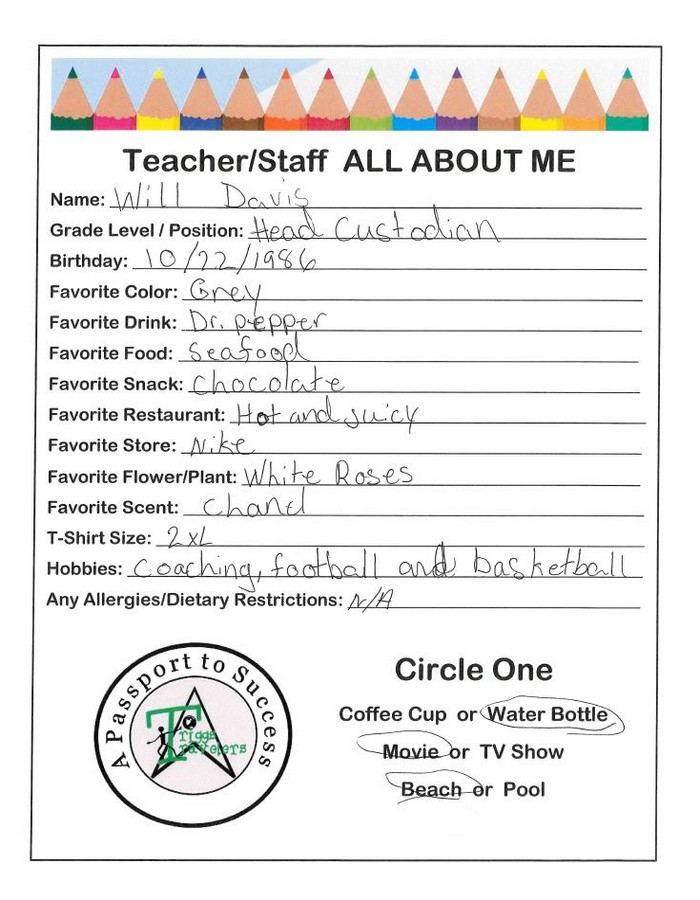 Teacher/Staff ALL ABOUT ME
Name: Will Davis
Grade Level / Position: Head Custodian
Birthday: 10/22/1986
Favorite Color: Grey
Favorite Drink: Dr. pepper
Favorite Food: Seafood
Favorite Snack: Chocolate
Favorite Restaurant: Hot and Juicy
Favorite Store: Nike
Favorite Flower/Plant: White Roses
Favorite Scent: Chanel
T-Shirt Size: 2XL
Hobbies: Coaching, football and basketball
Any Allergies/Dietary Restrictions: N/A
A Passport to Success
Triggs
Travelers
Circle One
Coffee Cup or Water Bottle
Movie or TV Show
Beach or Pool